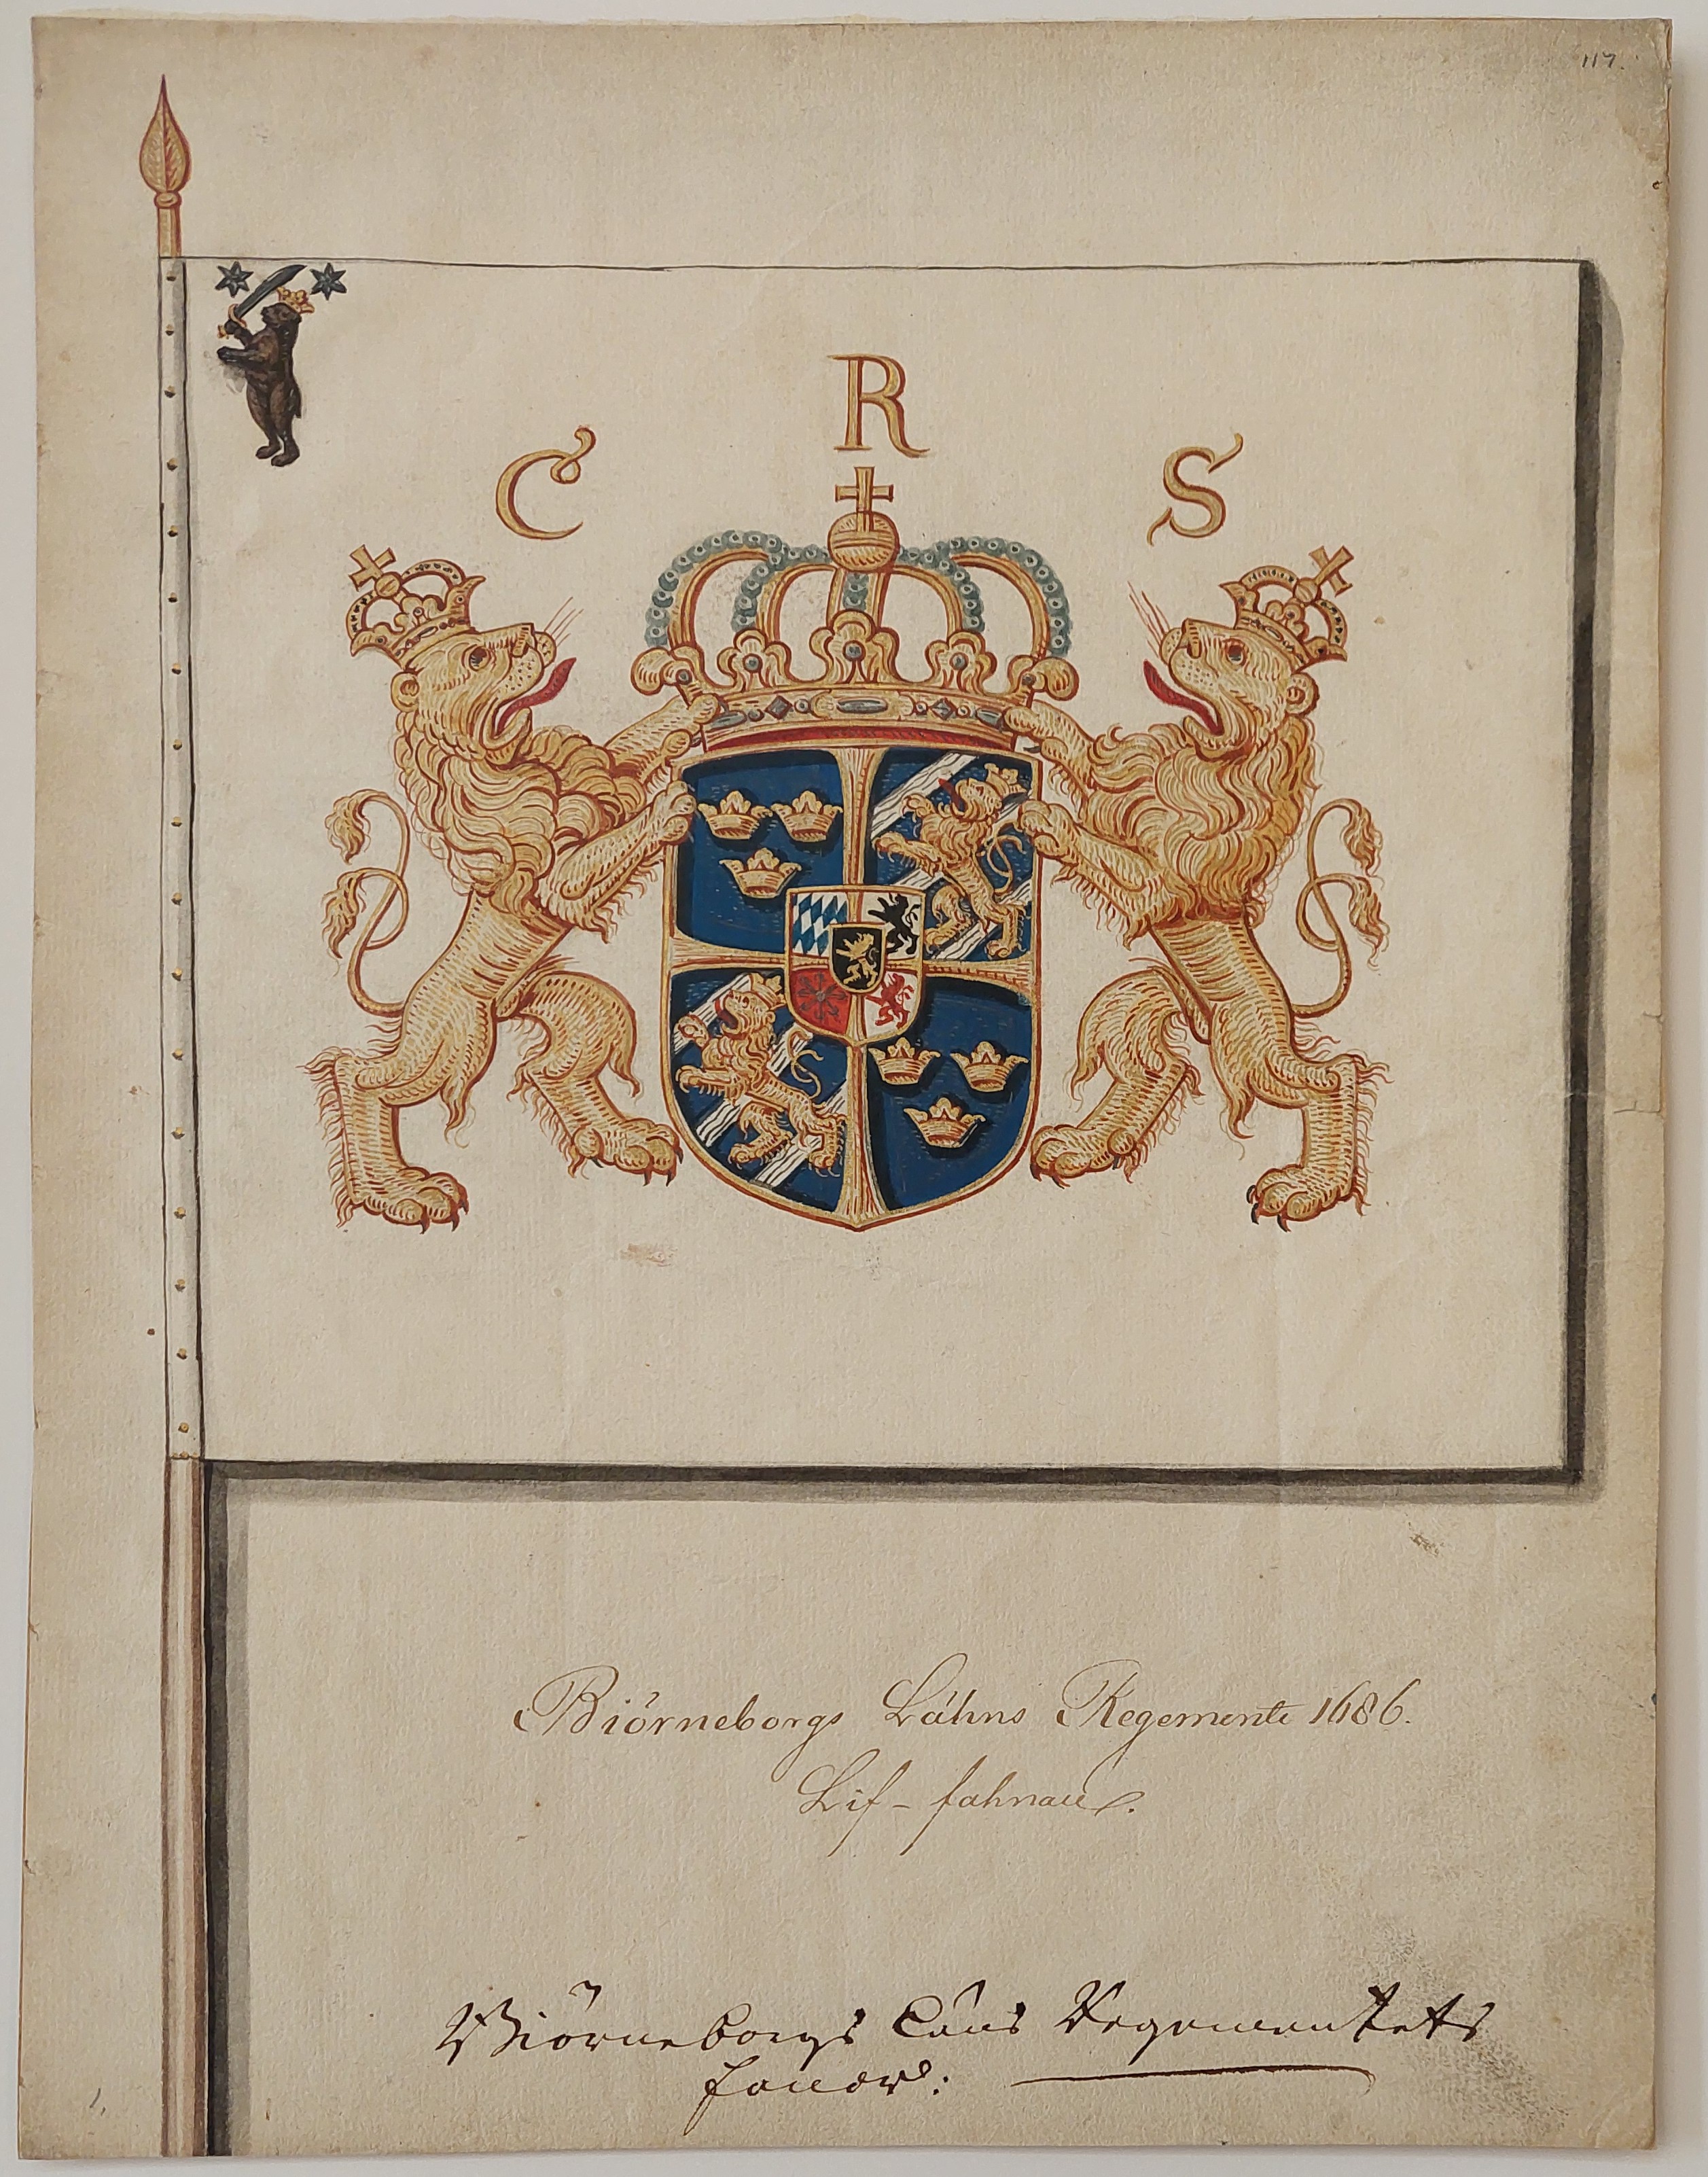 117.
C R S
Biörneborgs Lähns Regemente 1686.
Lif-fahnan.
Biörneborgs Läns Regementets
fanor:
1,